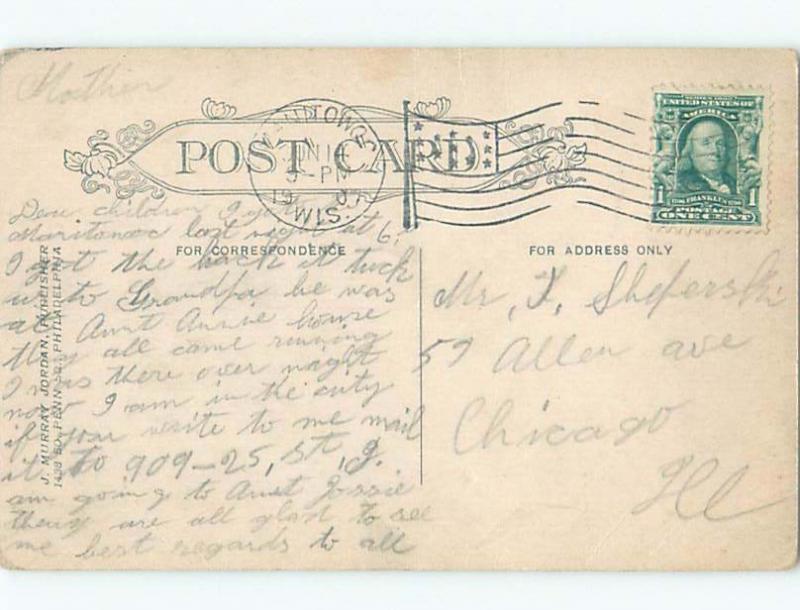 Mother
POST CARD
WIS.
SERIES 1902
UNITED STATES OF
AMERICA
1 FRANKLIN
POSTAGE
ONE CENT
Dear children I got
Maritowoc last night at 6,
FOR CORRESPONDENCE
FOR ADDRESS ONLY
I got the hack it tuck
us to Grandpa he was
at Aunt Annie house
they all came running
I was there over night
now I am in the city
if you write to me mail
it to 909-25, St, I.
am going to Aunt Jossie
they are all glad to see
me best regards to all
J. MURRAY JORDAN, PUBLISHER
1438 SO. PENN SQ. PHILADELPHIA
Mr,
59 Allen ave
Chicago
Ill